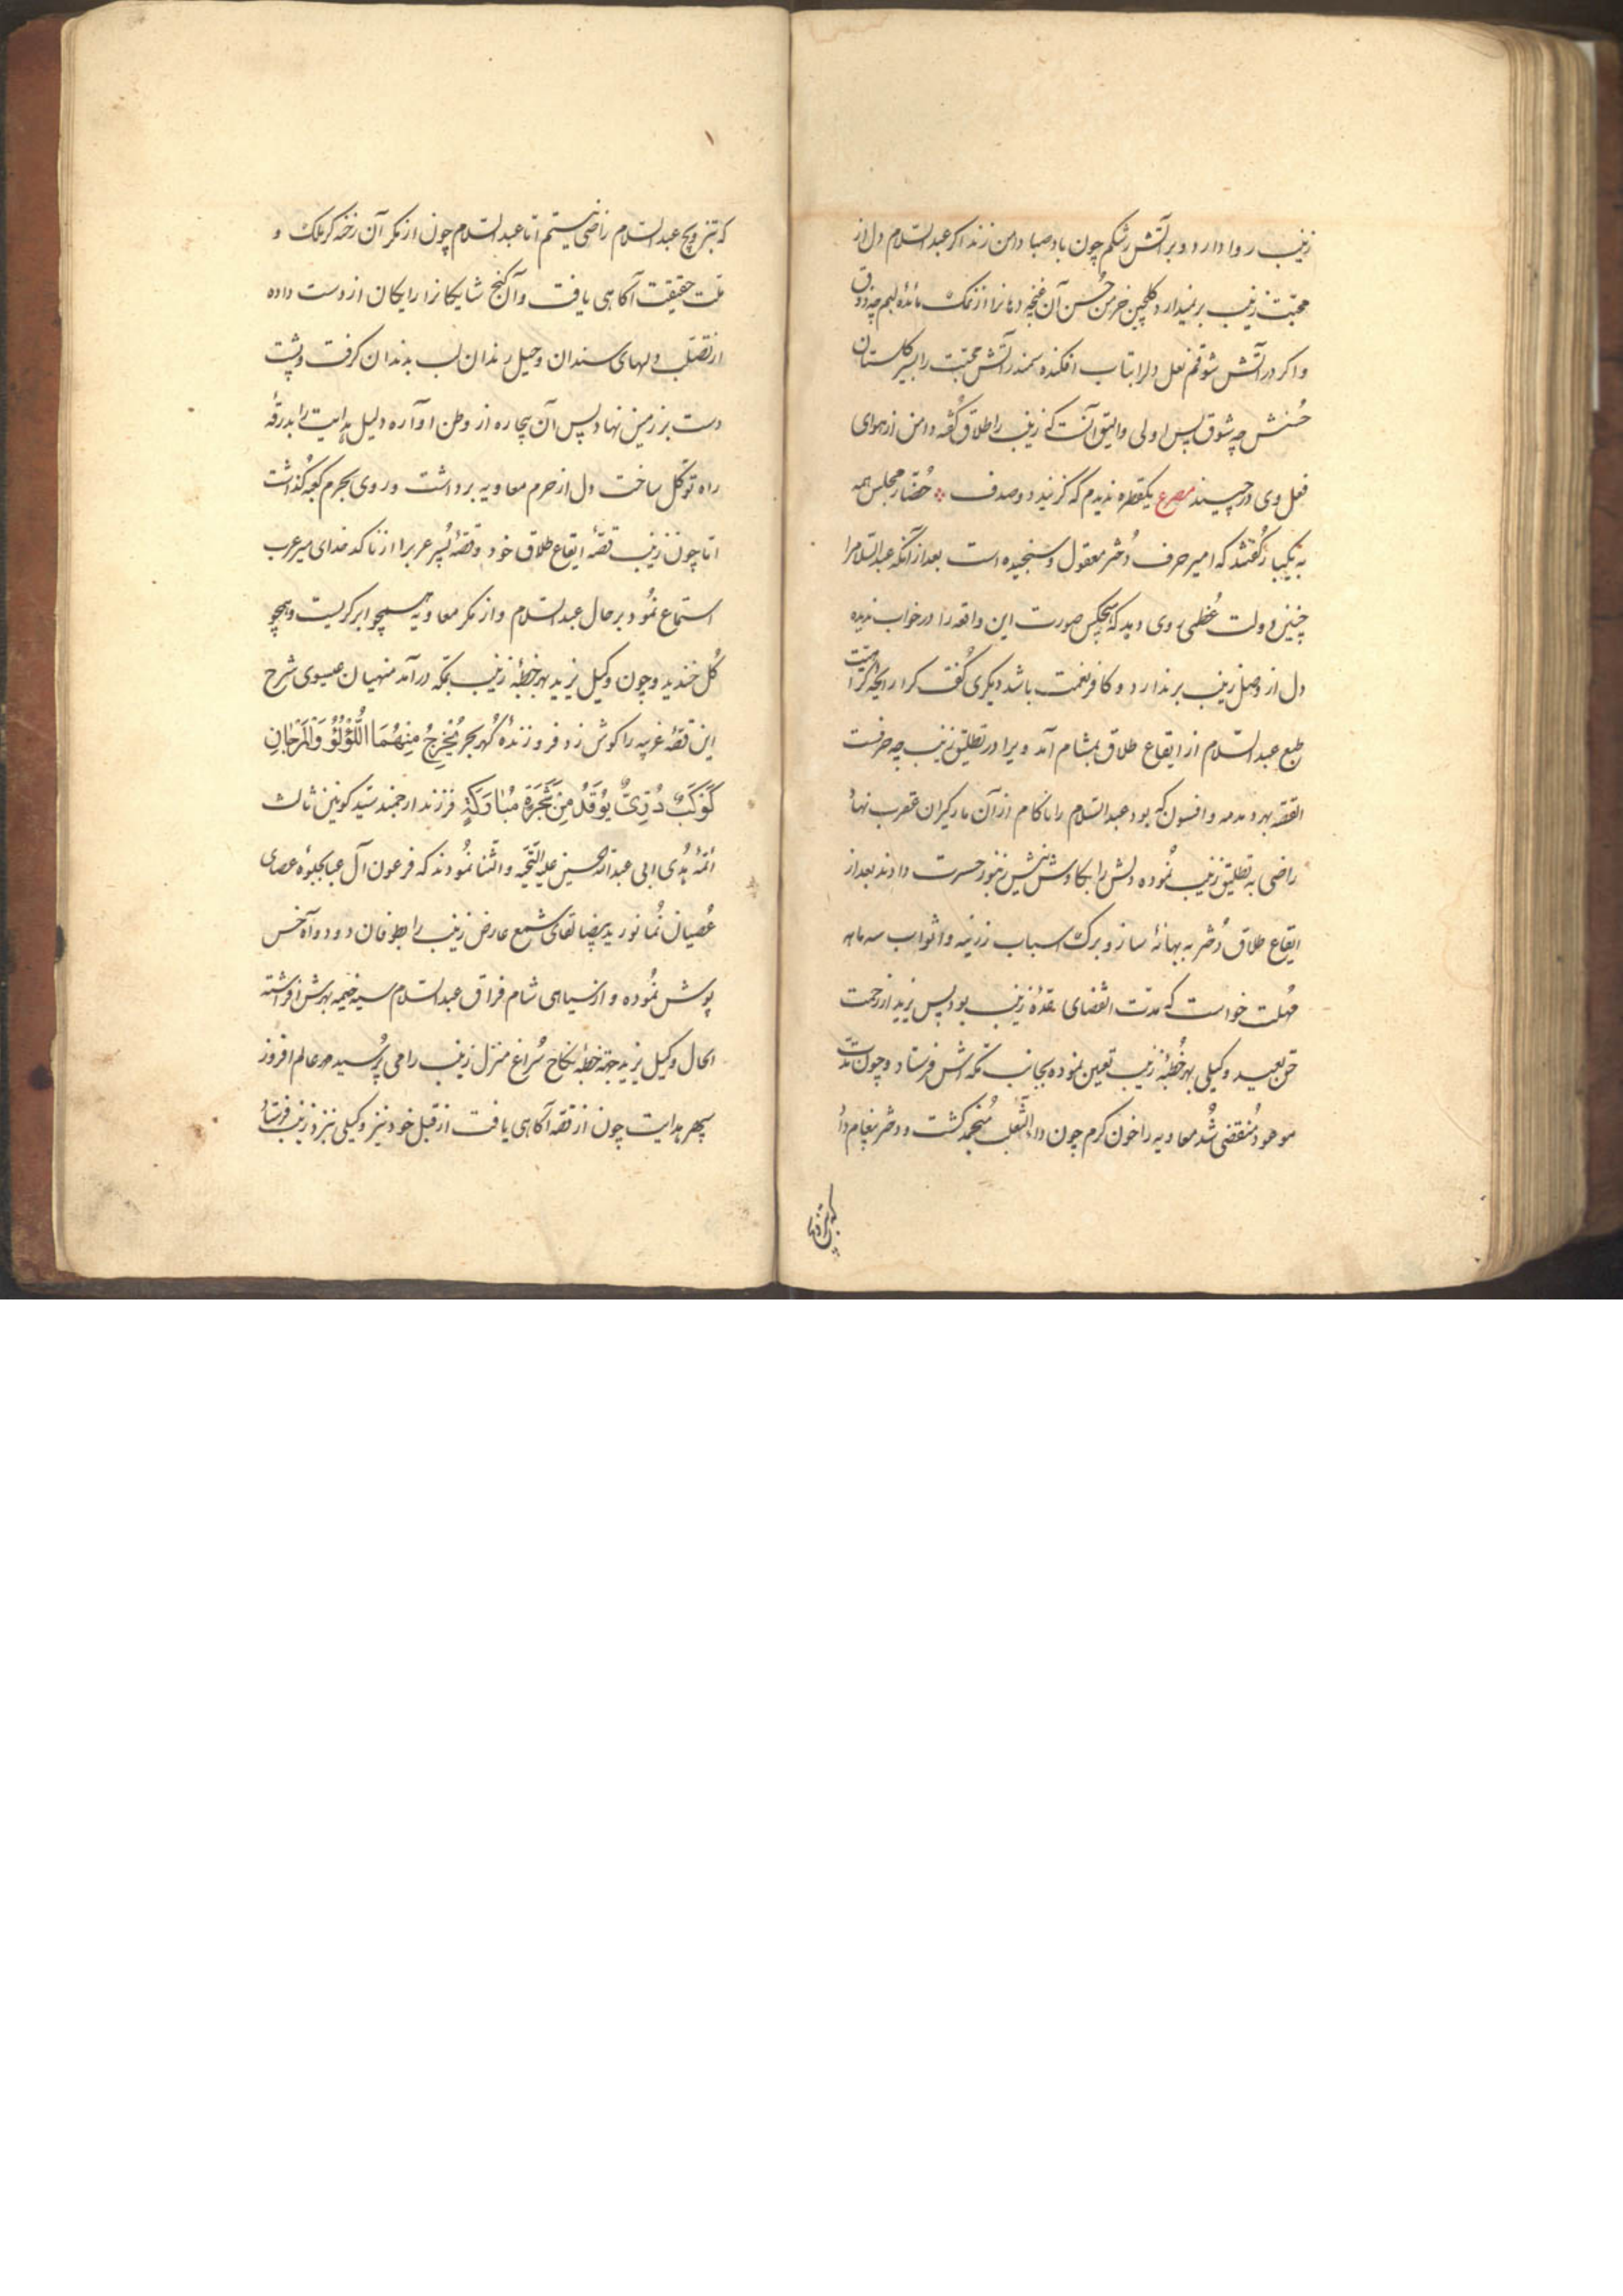 زینب روا دارد و بر آتش رشکم چون باد صبا دامن زند اگر عبد السّلام دل از
محبّت زینب برنمیدارد گلچین خرمن حُسن آن غنچه دهانرا از نمک مائدهٔ لبم چه ذوق
و اگر در آتش شوقم نعل دلرا بتاب افکنده سمندر آتش محبّت را بسیر گلستان
حُسنش چه شوق پس اولی و الیق آنست که زینب را طلاق گفته دامن از هوای
فعل وی درچیند مصرع یکقطره ندیدم که گزنید دو صدف حُضّار مجلس همه
به یکبار گفتند که امیر حرف دُختر معقول و سنجیده است بعد از آنکه عبد السّلامرا
چنین دولت عُظمی روی دهد که هیچکس صورت این واقعه را در خواب ندیده
دل از وصل زینب برندارد و کافر نعمت باشد دیگری گفت کرا رایحهٔ کراهیّت
طبع عبد السّلام از ایقاع طلاق بمشام آمد ویرا در تطلیق زینب چه حرفست
القصّه بهر دمدمه و افسون که بود عبد السّلام را ناکام از آن مارگیران عقرب نهاد
راضی به تطلیق زینب نُموده دلش را بکاوش نیش زنبور حسرت دادند بعد از
ایقاع طلاق دُختر به بهانهٔ ساز و برگ اسباب زرّینه و اثواب سه ماهه
مُهلت خواست که مدّت انقضای عدّهٔ زینب بود پس یزید از رحمت
حق بعید وکیلی بهر خُطبهٔ زینب تعیین نموده بجانب مکّه اش فرستاد و چون مدّت
موعود مُنقضی شُد معاویه را خون کرم چون داء الثّعلب مُنجمد گشت و دختر پیغام داد
که بتزویج
که بتزویج عبد السّلام راضی نیستم امّا عبد السّلام چون از مکر آن رخنه گر ملک و
ملّت حقیقت آگاهی یافت و آن گنج شایگانرا رایگان از دست داده
از تصلّب دلهای سندان و حیل رندان لب بدندان گرفت و پشت
دست بر زمین نهاد پس آن بیچاره از وطن آواره دلیل هدایت را بدرقهٔ
راه توکّل ساخت دل از حرم معاویه برداشت و روی بحرم کعبه گُذاشت
امّا چون زینب قصّهٔ ایقاع طلاق خود و قصّهٔ پُسر عربرا از ناکدخدای میر عرب
استماع نمُود بر حال عبد السّلام و از مکر معاویه همچو ابر گریست و همچو
گُل خندید و چون وکیل یزید بهر خطبهٔ زینب بمکّه درآمد منهیان عیسوی شرح
این قصّهٔ غریبه را گوش زد فروزندهٔ گُهر بحر يُخْرِجُ مِنْهُمَا اللُّؤْلُؤُ وَالْمَرْجَانِ
كَوْكَبٌ دُرِّيٌّ يُوقَدُ مِنْ شَجَرَةٍ مُبَارَكَةٍ فرزند ارجمند سیّد کونین ثالث
ائمّهٔ هُدی ابی عبد اللّه الحسین علیه التّحیّه و الثّنا نمُودند که فرعون آل عبا بجلوهٔ عصای
عُصیان نُما نور ید بیضا لقای شمع عارض زینب را بطوفان دود و آه خس
پوش نمُوده و از سیاهی شام فراق عبد السّلام سیه خیمه بهرش افراشته
الحال وکیل یزید جهة خطبهٔ نکاح سُراغ منزل زینب را می پُرسید مهر عالم افروز
سپهر هدایت چون از قصّه آگاهی یافت از قبل خود نیز وکیلی نزد زینب فرستاد